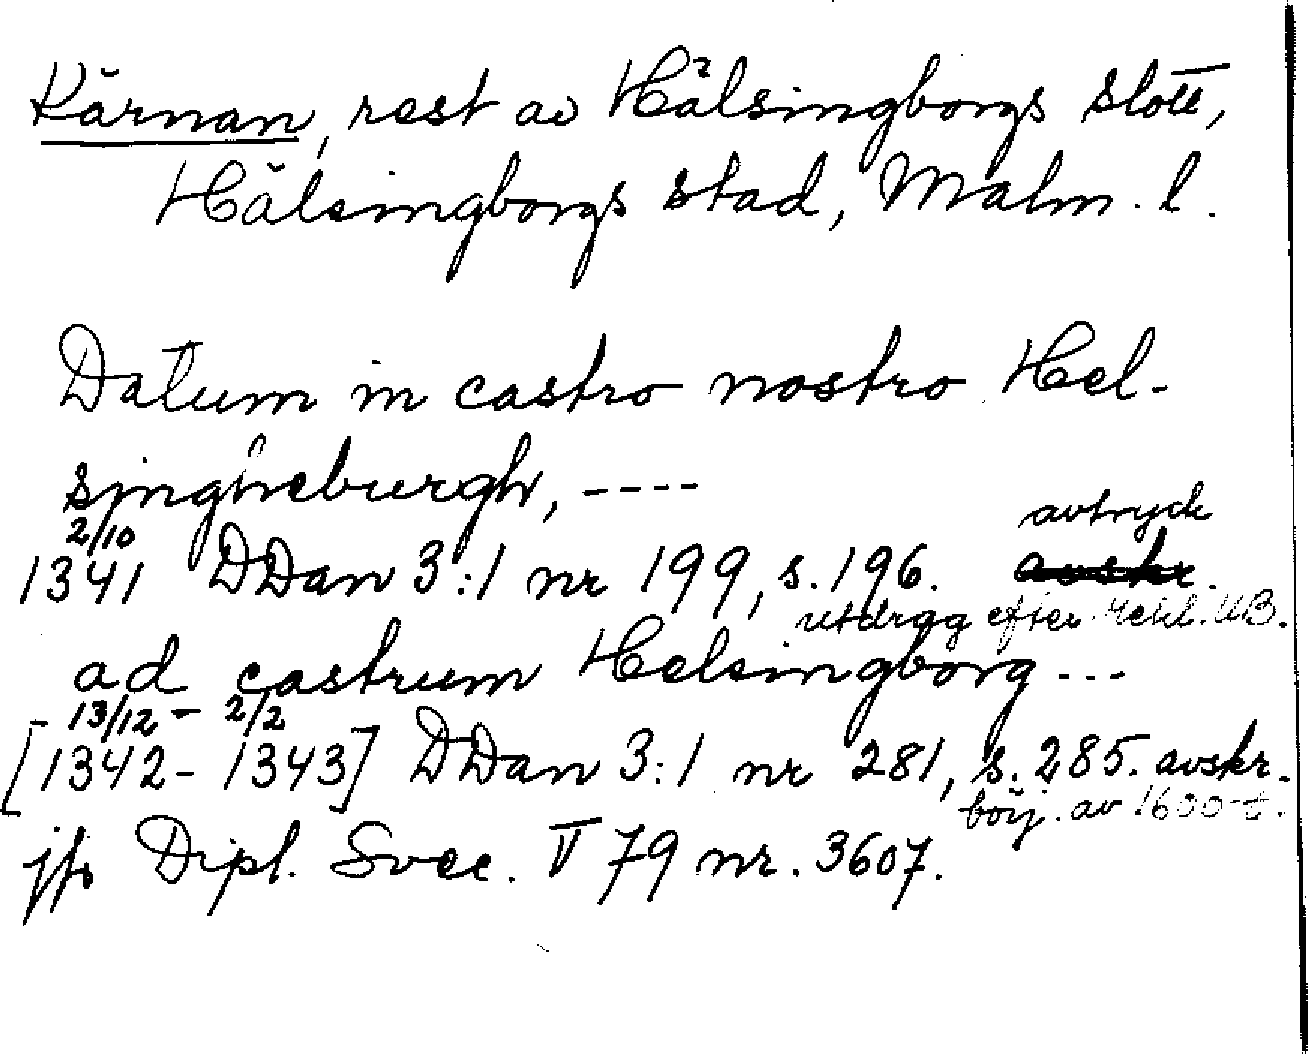 Kärnan, rest av Hälsingborgs slott,
Hälsingborgs stad, Malm. l.
Datum in castro nostro Hel-
singheburgh, ----
2/10 avtryck
1341 DDan 3:1 nr 199, s. 196. avskr.
utdrag efter Mekl. UB.
ad castrum Helsingborg ---
- 13/12 - 2/2
[1342 - 1343] DDan 3:1 nr 281, s. 285. avskr.
börj. av 1600-t.
jfr Dipl. Svec. V 79 nr. 3607.